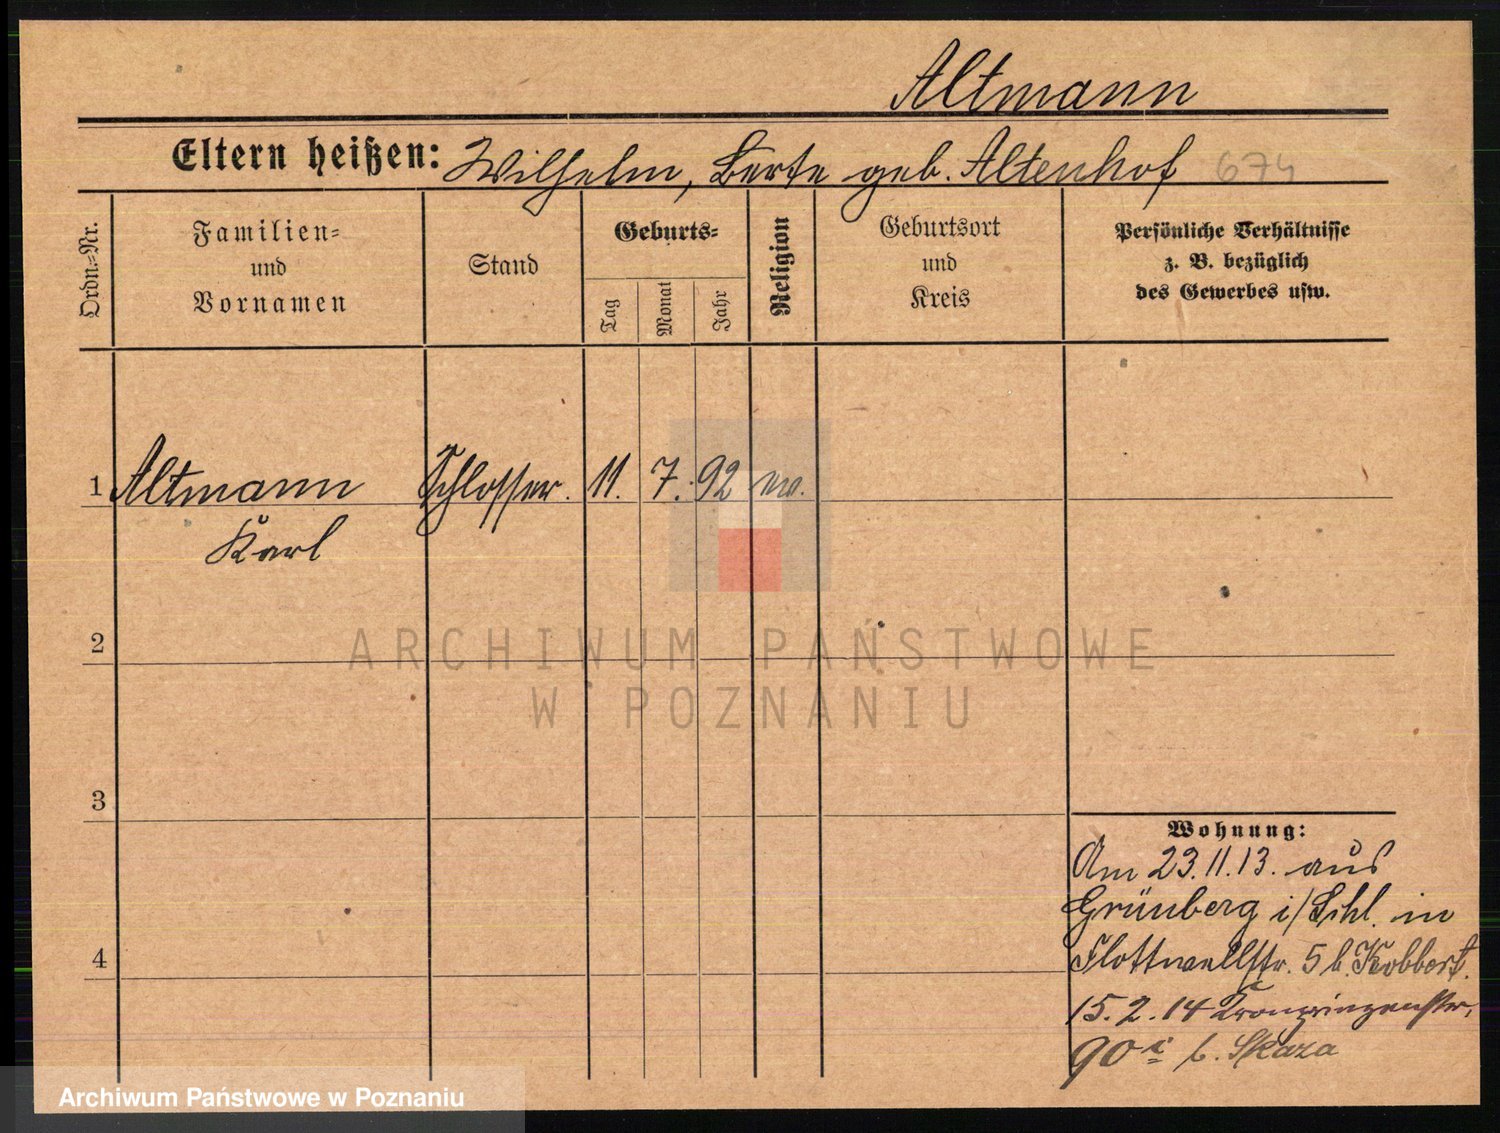 Altmann
Eltern heißen: Wilhelm, Berta geb. Altenhof 674
Ordn.=Nr.
Familien=
und
Vornamen
Stand
Geburts=
Tag
Monat
Jahr
Religion
Geburtsort
und
Kreis
Persönliche Verhältnisse
z. B. bezüglich
des Gewerbes usw.
1 Altmann Schlosser. 11. 7. 92 ev.
Karl
2
ARCHIWUM PAŃSTWOWE
W POZNANIU
3
Wohnung:
Am 23.11.13. aus
Grünberg i/Schl. in
Flottwellstr. 5 b. Kobbert.
4
15.2.14 Kronprinzenstr.
90 b. Skaza
Archiwum Państwowe w Poznaniu